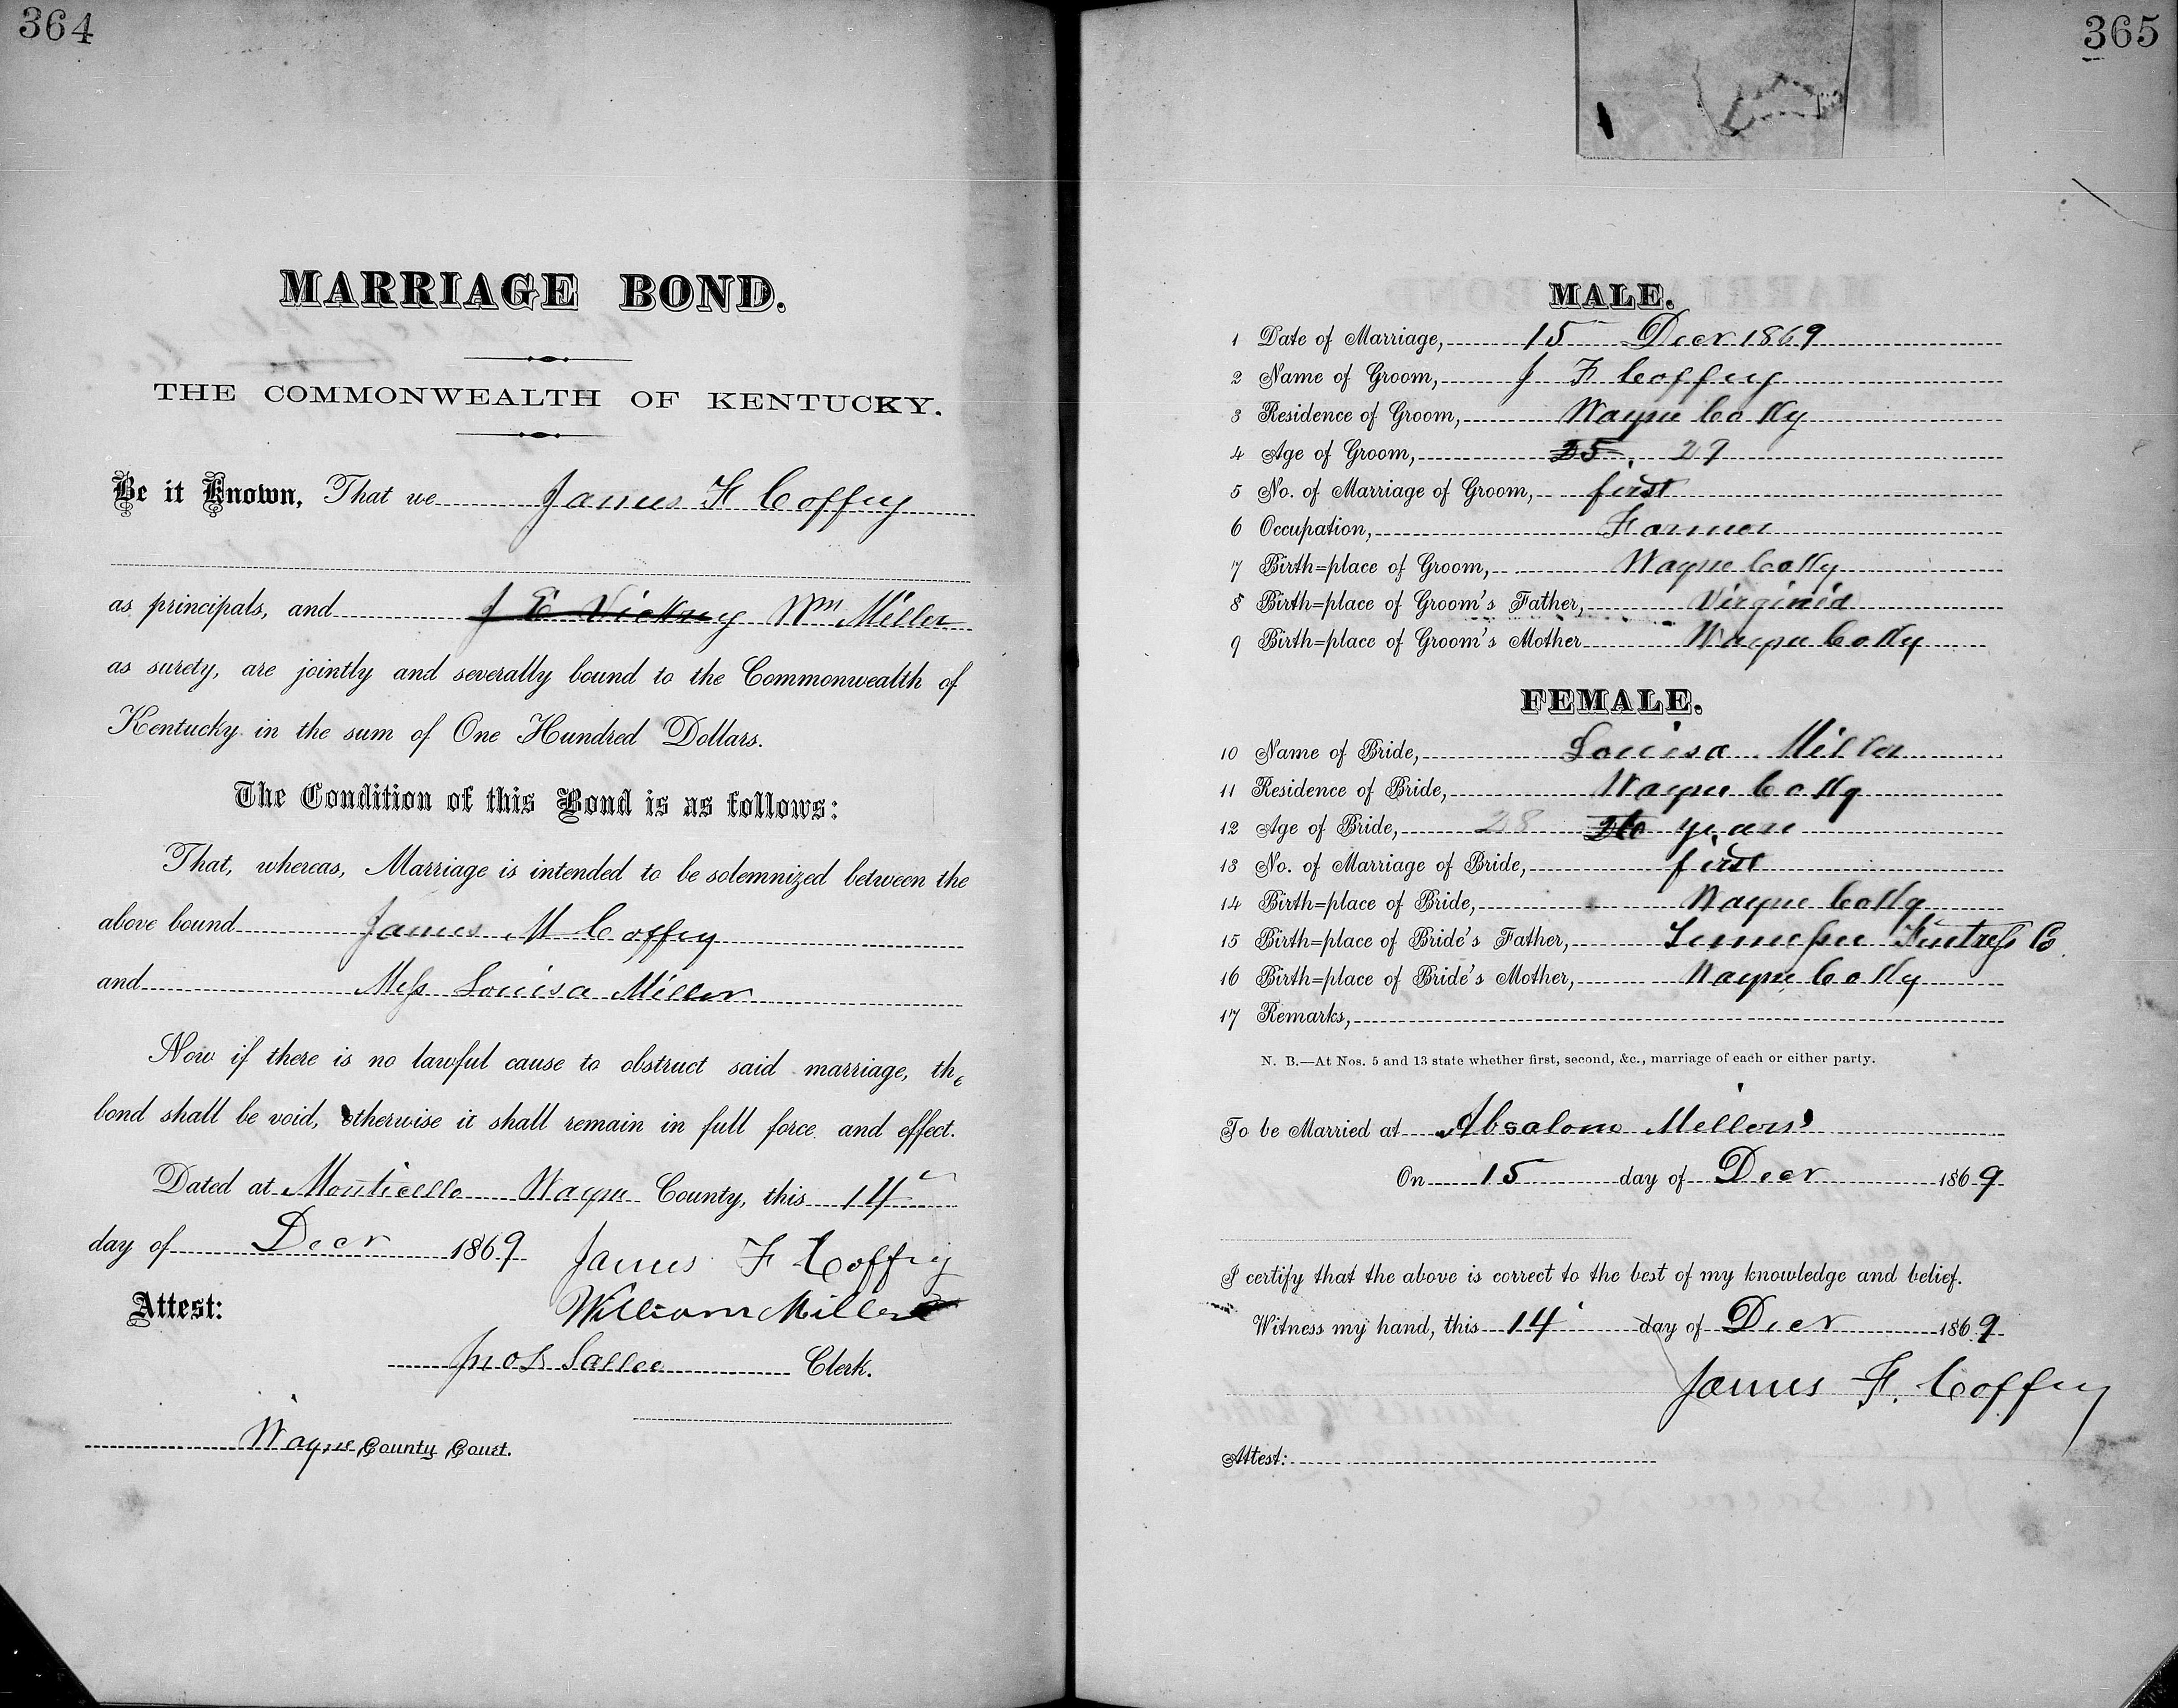 364
MARRIAGE BOND.
THE COMMONWEALTH OF KENTUCKY.
Be it Known, That we James F Coffey
as principals, and J E Vickrey Wm Miller
as surety, are jointly and severally bound to the Commonwealth of
Kentucky in the sum of One Hundred Dollars.
The Condition of this Bond is as follows:
That, whereas, Marriage is intended to be solemnized between the
above bound James M Coffey
and Miss Louisa Miller
Now if there is no lawful cause to obstruct said marriage, the
bond shall be void, otherwise it shall remain in full force and effect.
Dated at Monticello Wayne County, this 14
day of Decr 1869 James F Coffey
Attest: William Miller
Jno L Sallee Clerk.
Wayne County Court.
365
MALE.
1 Date of Marriage, 15 Decr 1869
2 Name of Groom, J F Coffey
3 Residence of Groom, Wayne Co Ky
4 Age of Groom, 25. 29
5 No. of Marriage of Groom, first
6 Occupation, Farmer
7 Birth=place of Groom, Wayne Co Ky
8 Birth=place of Groom's Father, Virginia
9 Birth=place of Groom's Mother Wayne Co Ky
FEMALE.
10 Name of Bride, Louisa Miller
11 Residence of Bride, Wayne Co Ky
12 Age of Bride, 28 26 years
13 No. of Marriage of Bride, first
14 Birth=place of Bride, Wayne Co Ky
15 Birth=place of Bride's Father, Tennessee Fentress Co.
16 Birth=place of Bride's Mother, Wayne Co Ky
17 Remarks,
N. B.—At Nos. 5 and 13 state whether first, second, &c., marriage of each or either party.
To be Married at Absalom Millers'
On 15 day of Decr 1869
I certify that the above is correct to the best of my knowledge and belief.
Witness my hand, this 14 day of Decr 1869
James F. Coffey
Attest: